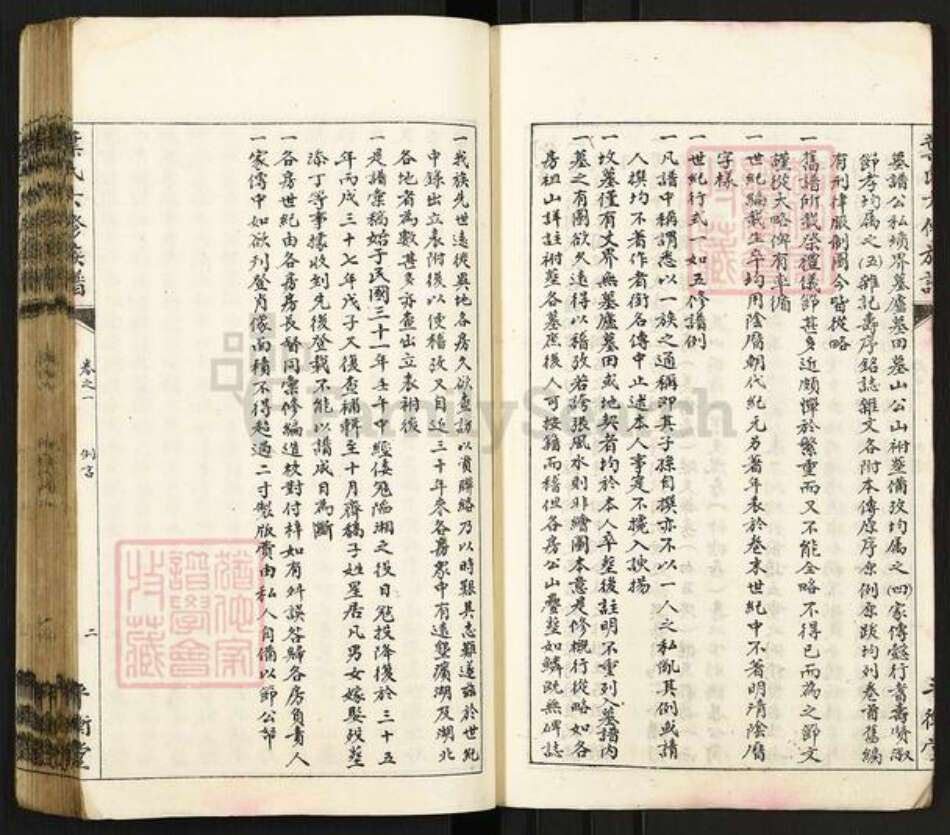 墓譜公私墳界墓廬墓田墓山公山祔塟備攷均屬之(四)家傳懿行耆壽賢淑
節孝均屬之(五)雜記壽序銘誌雜文各附本傳原序原例原跋均列卷首舊編
有刑律服制圖今皆從略
一舊譜所載祭禮儀節甚多近頗憚於繁重而又不能全略不得已而為之節文
謹從大略俾有率循
一世紀編載生卒均用陰曆朝代紀元另著年表於卷末世紀中不著明清陰曆
字樣
一世紀行式一如五修譜例
一凡譜中稱謂悉以一族之通稱即其子孫自撰亦不以一人之私亂其例或請
人撰均不著作者銜名傳中止述本人事寔不攙入揄揚
一坟墓僅有丈界無墓廬墓田或地契者均於本人卒塟後註明不重列入墓譜內
一墓之有圖欲久遠得以稽攷若誇張風水則非繪圖本意是修概行從略如各
房祖山詳註祔塟各墓庶後人可按籍而稽但各房公山疊塟如鱗既無碑誌
一我族先世遠徙異地各房久欲查訪以資聯絡乃以時艱莫志難遂茲於世紀
中錄出立表附後以便稽攷又自近三十年來各房眾中有遠墾濱湖及湖北
各地者為數甚多亦查出立表祔後
一是譜彙稿始于民國三十一年壬午中經倭冦陷湘之後日冦投降後於三十五
年丙戌三十七年戊子又復查補輯至十月齊稿子姓星居凡男女嫁娶歿塟
添丁等事據收到先後登載不能以譜成日為斷
一各房世紀由各房房長督同彙修編造校對付梓如有舛誤咎歸各房負責人
一家傳中如欲列登肖像面積不得超過二寸製版費由私人自備以節公帑
葉氏六修族譜
卷之一
例言
二
平衡堂